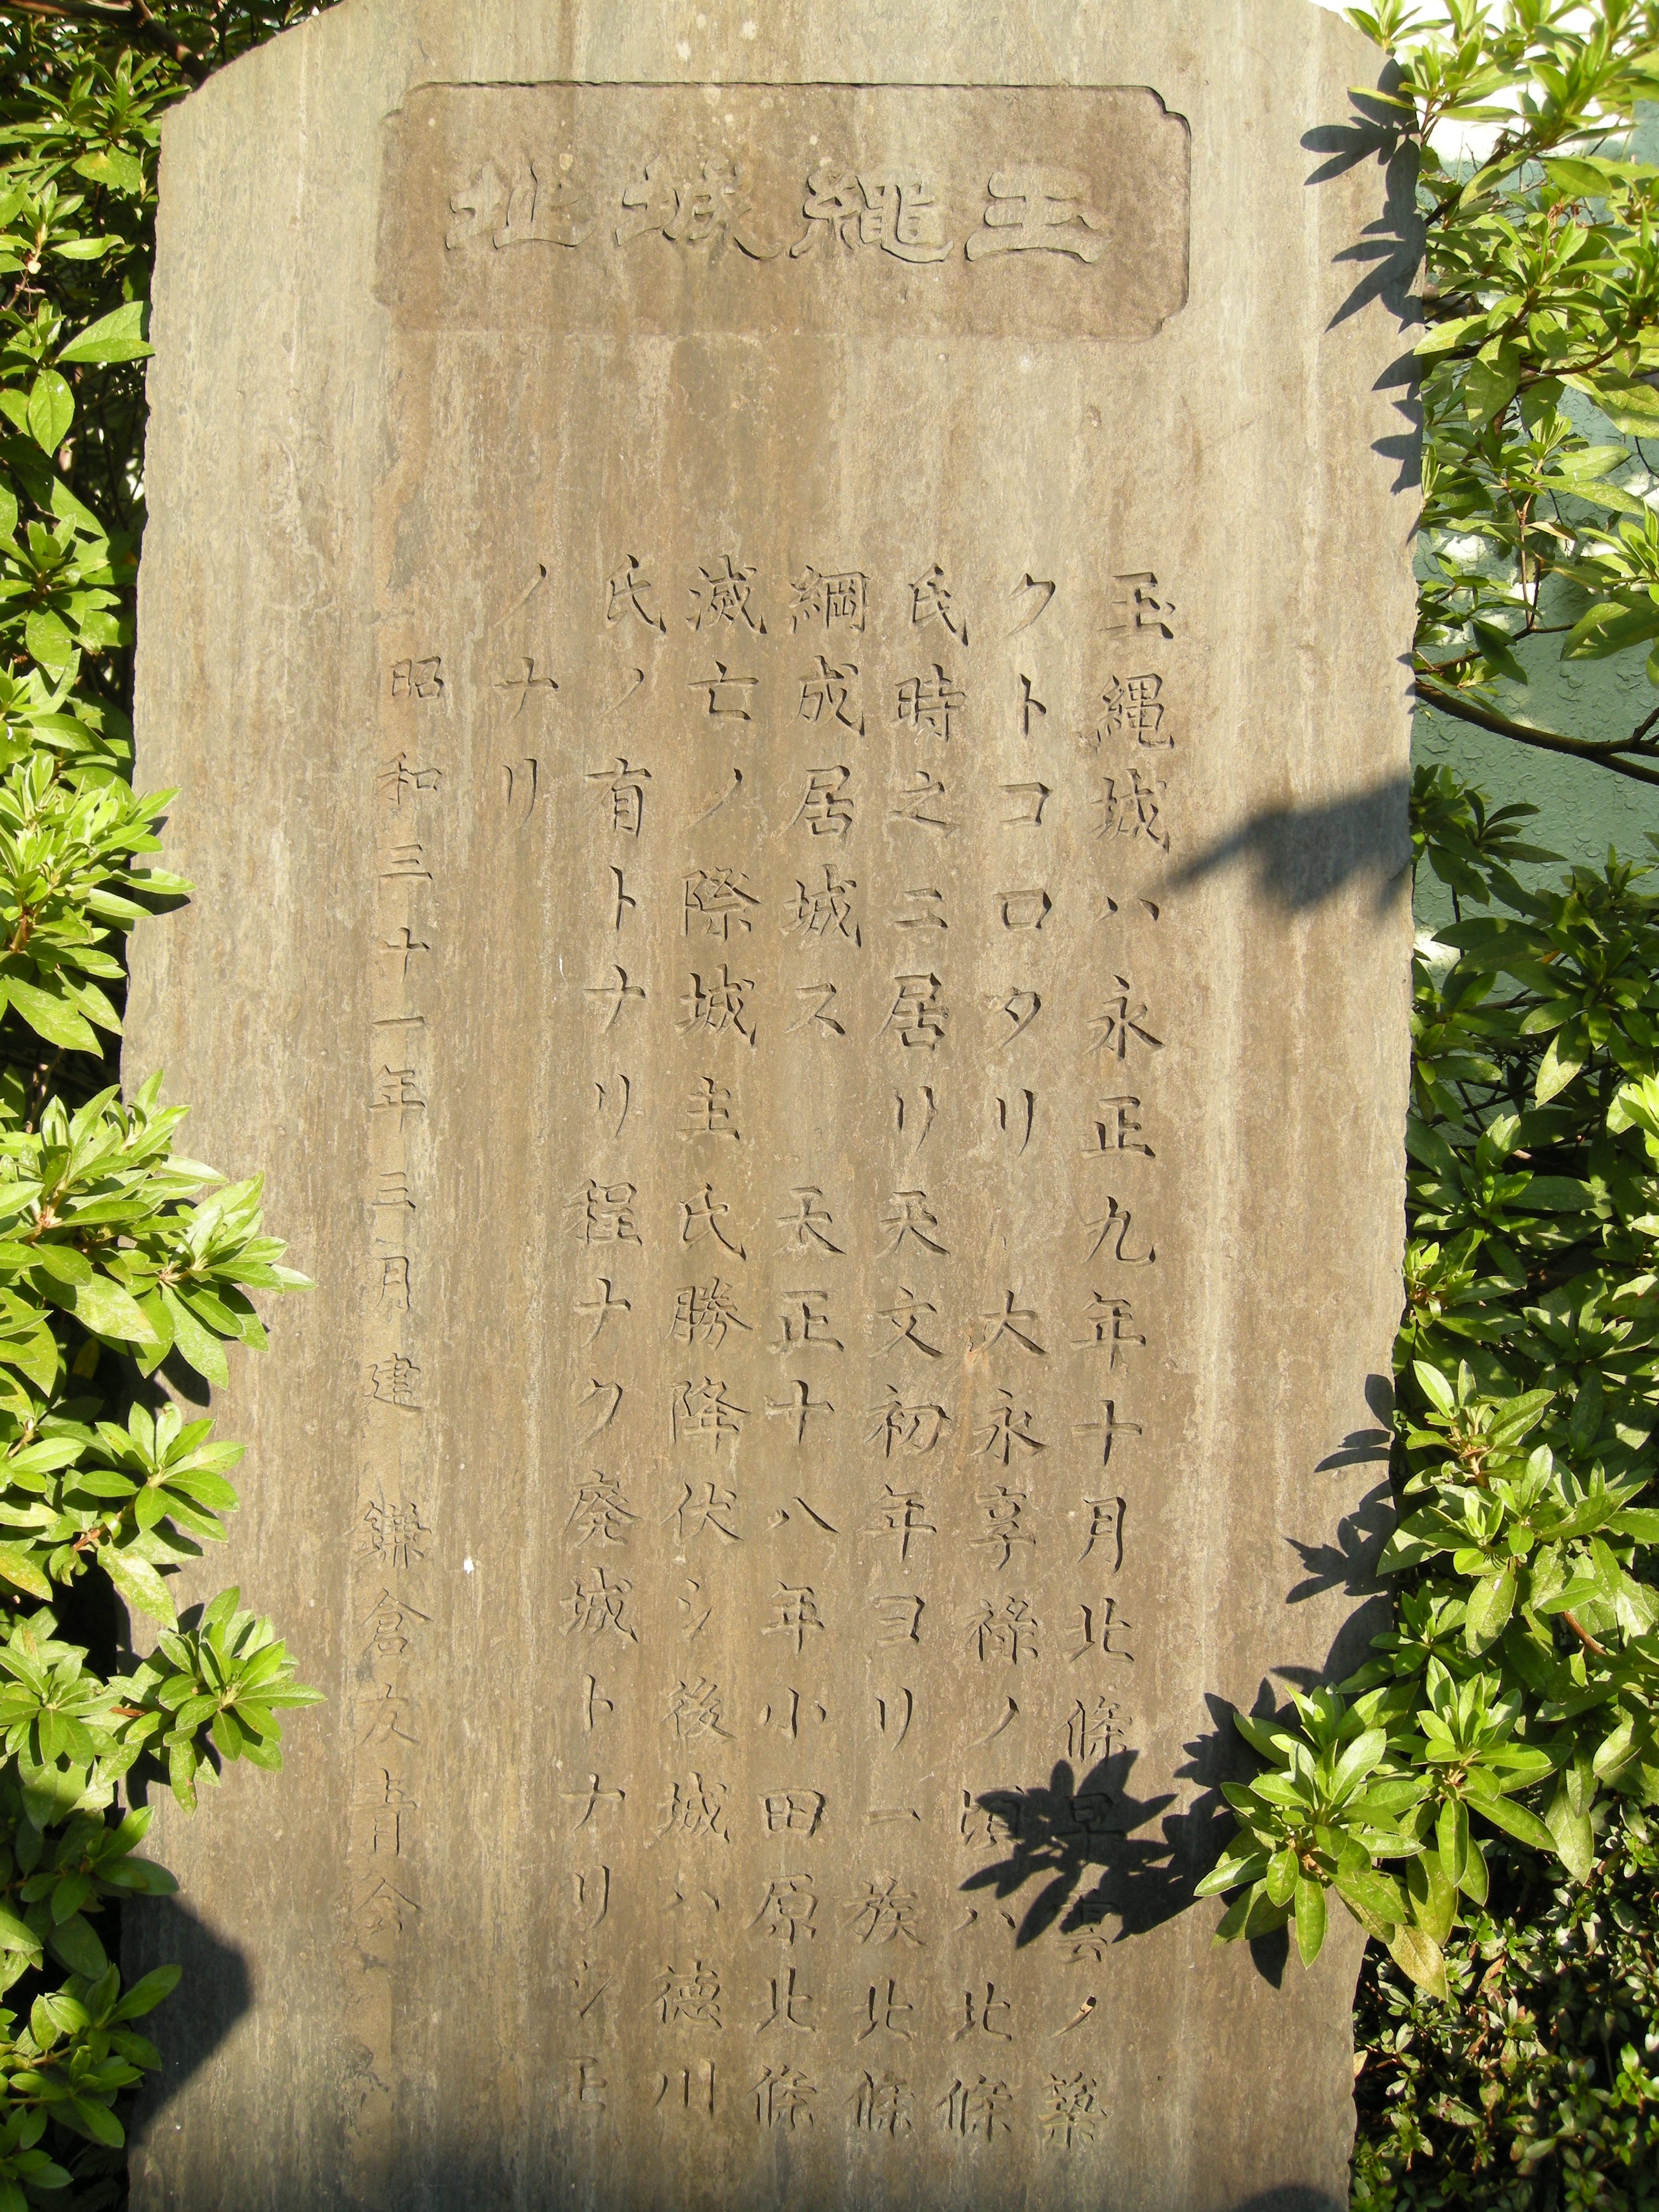 玉繩城址
玉縄城ハ永正九年十月北條早雲ノ築
クトコロタリ 大永享祿ノ頃ハ北條
氏時之ニ居リ天文初年ヨリ一族北條
綱成居城ス 天正十八年小田原北條
滅亡ノ際城主氏勝降伏シ後城ハ德川
氏ノ有トナリ程ナク廃城トナリシモ
ノナリ
昭和三十一年三月建 鎌倉友青会